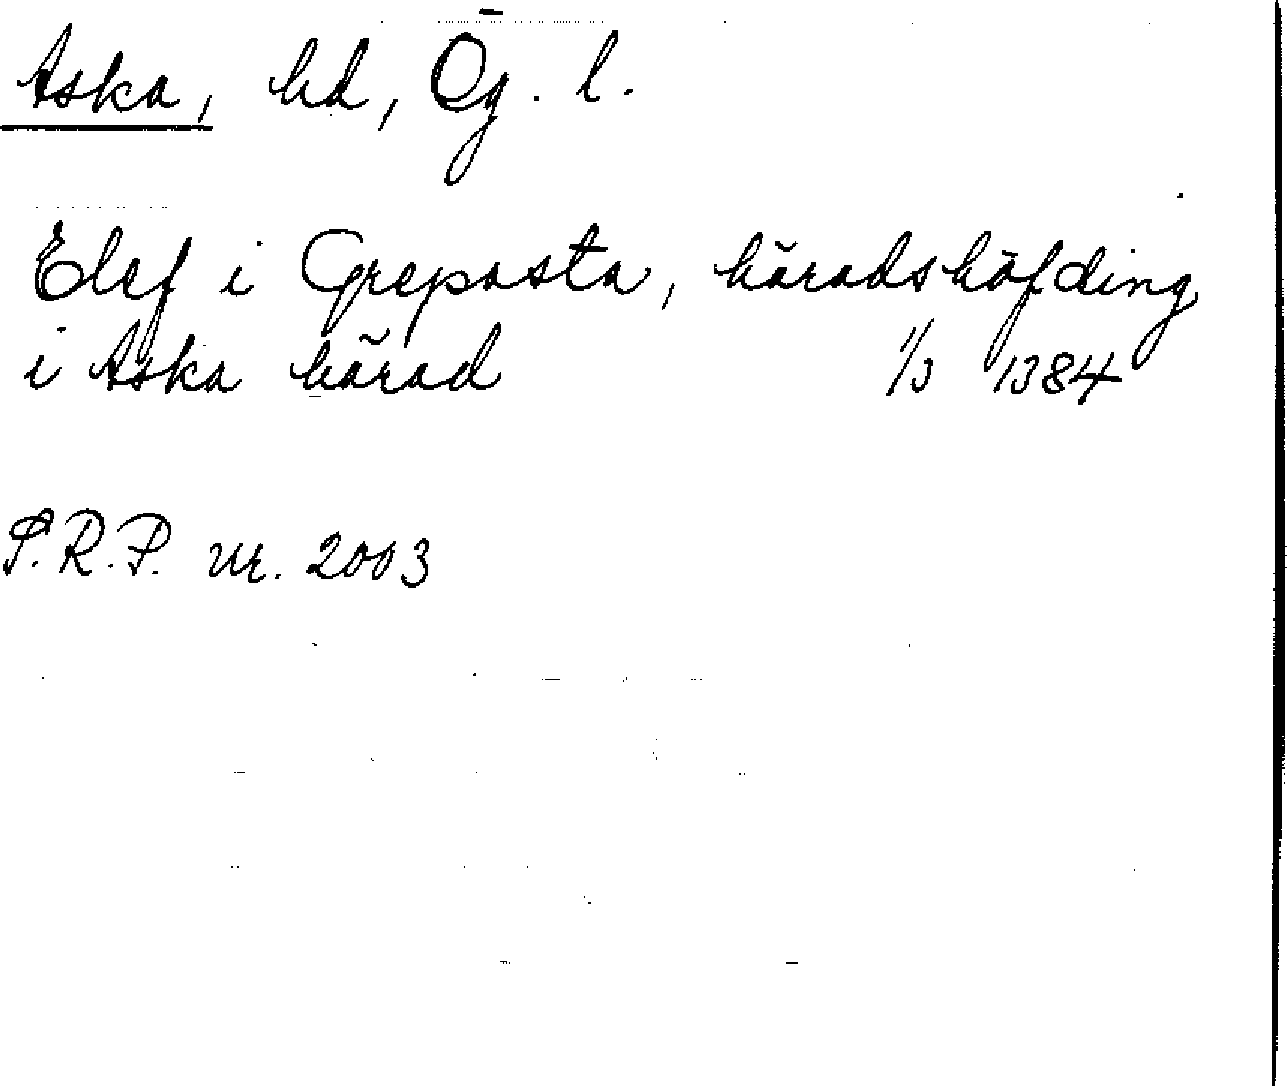 Aska, hd, Ög. l.
Elef i Grepasta, häradshöfding
i Aska härad 1/3 1384
S.R.P. nr. 2003